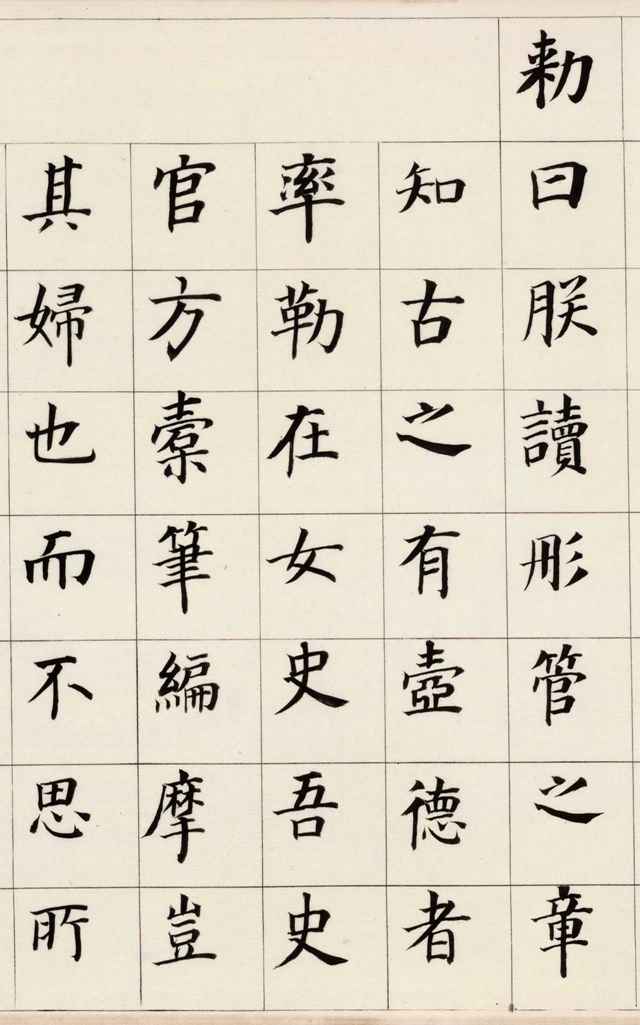 勑曰朕讀彤管之章
知古之有壼德者
率勒在女史吾史
官方櫜筆編摩豈
其婦也而不思所